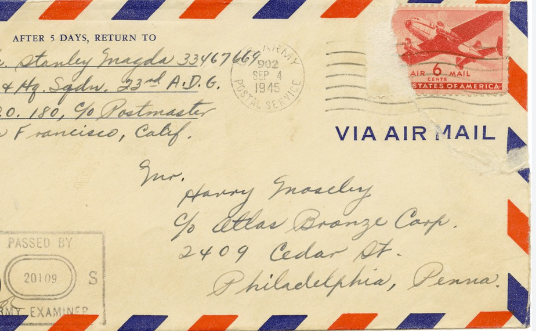 AFTER 5 DAYS, RETURN TO
Stanley 33467669
& Hq. Sqdn. 22nd A.D.G.
P.O. 180, c/o Postmaster
Francisco, Calif.
ARMY
902
SEP 4
1945
POSTAL SERVICE
AIR 6 MAIL
CENTS
STATES OF AMERICA
VIA AIR MAIL
Mr.
Harry Moseley
c/o Atlas Bronze Corp.
2409 Cedar St.
Philadelphia, Penna.
PASSED BY
20109 S
ARMY EXAMINER